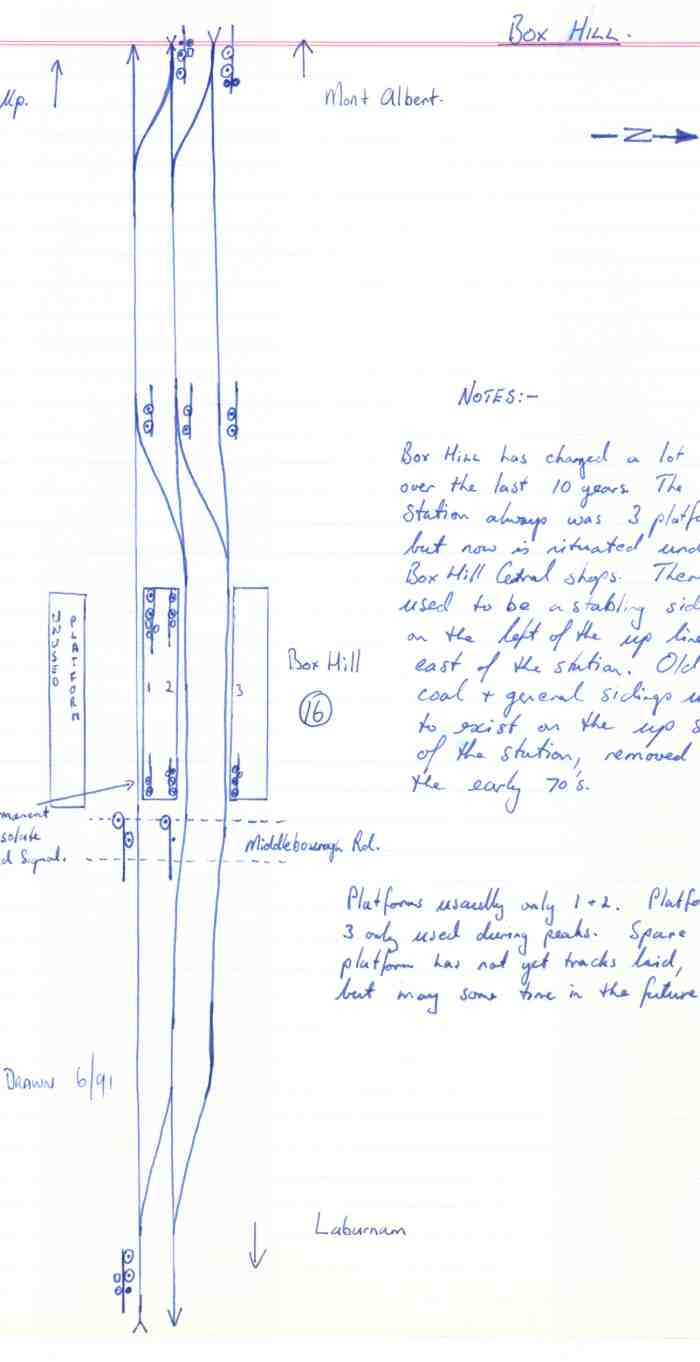 Box Hill.
Up.
Mont Albert.
N
NOTES:-
Box Hill has changed a lot
over the last 10 years. The
Station always was 3 platfo
but now is situated und
Box Hill Central shops. Ther
used to be a stabling sid
on the left of the up line
east of the station. Old
coal + general sidings u
to exist on the up s
of the station, removed
the early 70's.
PLATFORM
UNUSED
1 2 3
Box Hill
16
manent
solute
d Signal.
Middlebourogh Rd.
Platforms usually only 1+2. Platfo
3 only used during peaks. Spare
platform has not yet tracks laid,
but may some time in the future
DRAWN 6/91
Laburnam